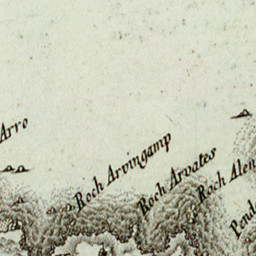 Arro
Roch Arvingamp
Roch Arvates
Roch Alen
Pend